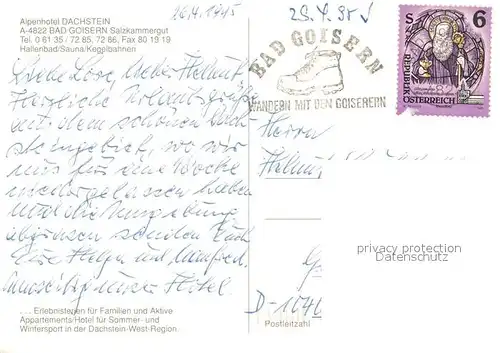 Alpenhotel DACHSTEIN
A-4822 BAD GOISERN Salzkammergut
Tel. 0 61 35 / 72 85, 72 86, Fax 80 19 19
Hallenbad/Sauna/Kegelbahnen
26.4.1995
29.4.95
BAD GOISERN
WANDERN MIT DEN GOISERERN
S 6
REPUBLIK
ÖSTERREICH
Liebe Lore, lieber Helmut
Herzliche Urlaubsgrüße
aus dem schönen Dach-
steingebiet, wo wir
uns für eine Woche
niedergelassen haben
und die Umgebung
abgrasen senden Euch
Eure Helga und Manfred.
Umseitig unser Hotel.
Herrn
Helmut
privacy protection
Datenschutz
D-1040
Postleitzahl
.... Erlebnisferien für Familien und Aktive
Appartements/Hotel für Sommer- und
Wintersport in der Dachstein-West-Region.